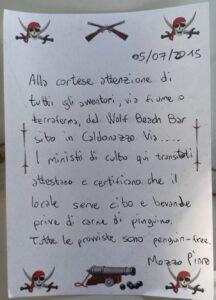 05/07/2015
Alla cortese attenzione di
tutti gli avventori, via fiume o
terraferma, del Wolf Beach Bar
sito in Caldonazzo Via.....
I ministri di culto qui transitati
attestano e certificano che il
locale serve cibo e bevande
prive di carne di pinguino.
Tutte le provviste sono penguin-free.
Mozzo